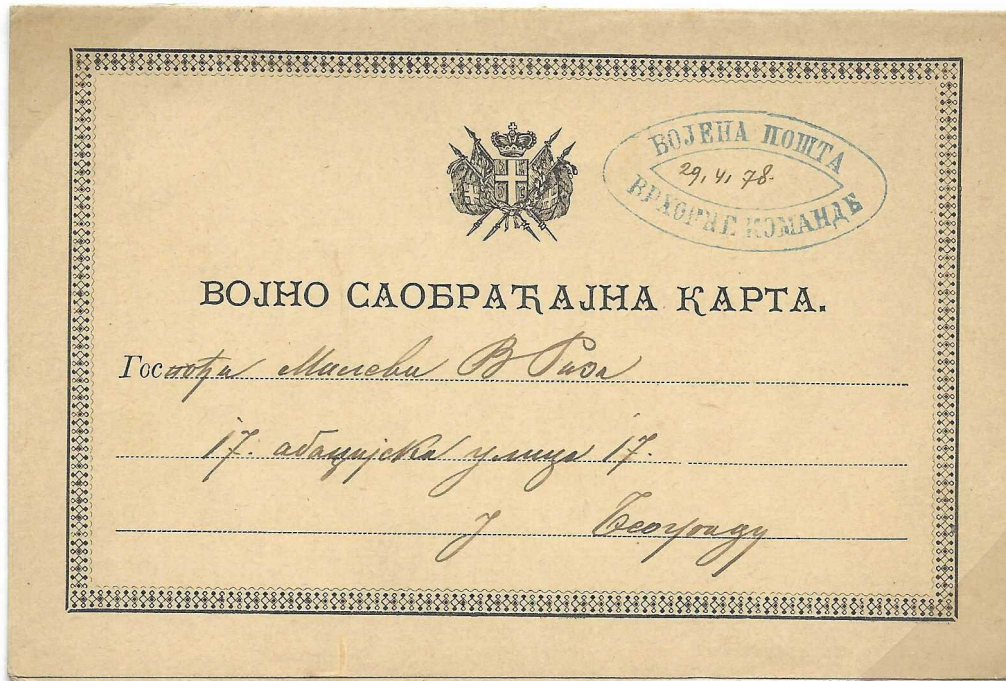 ВОЈЕНА ПОШТА
29, VI, 78.
ВРХОВНЕ КОМАНДЕ
ВОЈНО САОБРАЋАЈНА КАРТА.
Госпођи Милеви В
17. абаџијска улица 17.
у Београду